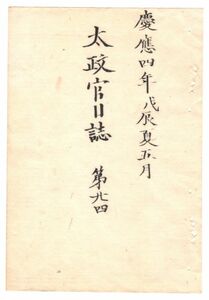 慶應四年戊辰夏五月
太政官日誌 第廿四